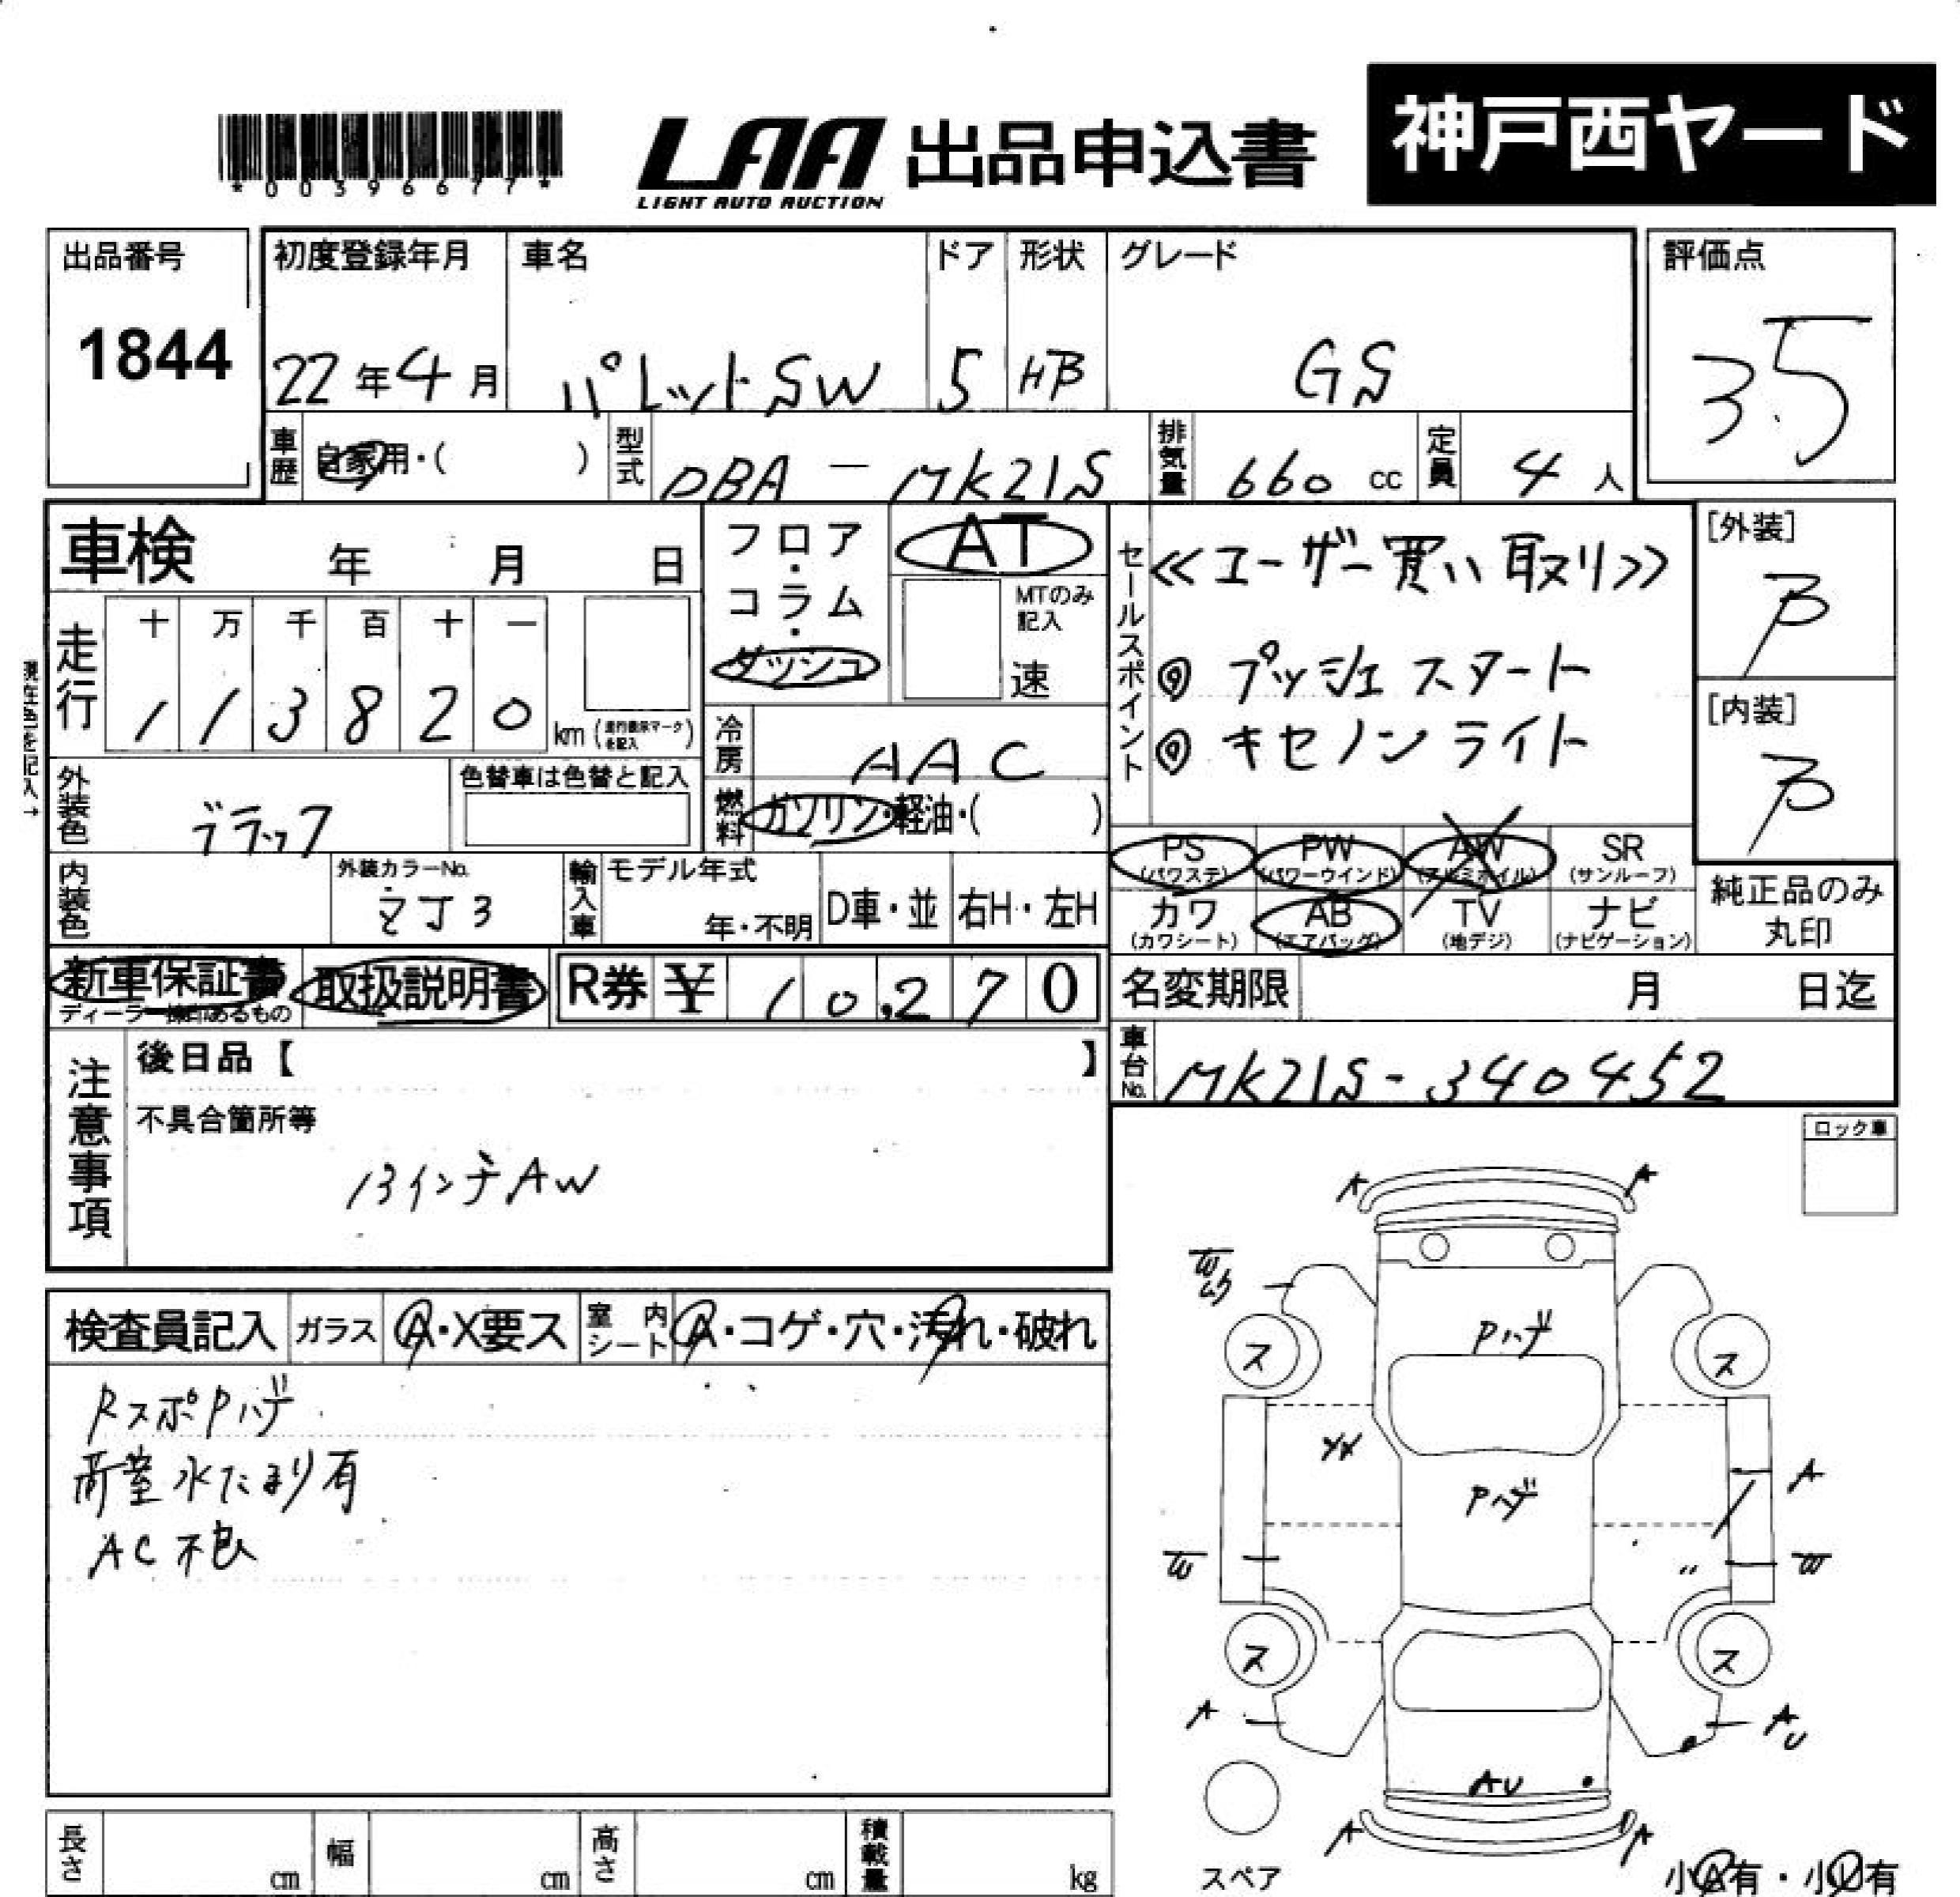 *00396677*
LAA 出品申込書
LIGHT AUTO AUCTION
神戸西ヤード
出品番号
1844
初度登録年月
22年4月
車名
パレットSW
ドア
5
形状
HB
グレード
GS
評価点
3.5
車歴 自家用・( )
型式 DBA-MK21S
排気量 660 cc
定員 4 人
車検 年 月 日
フロア・コラム・ダッシュ
AT
MTのみ記入
速
走行
十 万 千 百 十 一
1 1 3 8 2 0
km (走行表示マークを記入)
現在色を記入→
冷房 AAC
燃料 ガソリン・軽油・( )
外装色 ブラック
色替車は色替と記入
内装色
外装カラーNo.
ZJ3
輸入車
モデル年式
年・不明
D車・並
右H・左H
セールスポイント
≪ユーザー買い取り≫
◎ プッシュスタート
◎ キセノンライト
[外装]
B
[内装]
B
PS (パワステ)
PW (パワーウインド)
AW (アルミホイル)
SR (サンルーフ)
カワ (カワシート)
AB (エアバッグ)
TV (地デジ)
ナビ (ナビゲーション)
純正品のみ丸印
新車保証書
取扱説明書
R券 ¥ 10,270
名変期限 月 日迄
車台No. MK21S-340452
注意事項
後日品【 】
不具合箇所等
13インチAW
ロック車
検査員記入
ガラス A・X要ス
室内シート A・コゲ・穴・汚れ・破れ
RスポPハゲ
荷室水たまり有
AC不良
A A
W
Pハゲ
ス ス
A
Pハゲ
W W
ス ス
A AU
AU
A A
スペア
小A有・小U有
長さ cm
幅 cm
高さ cm
積載量 kg